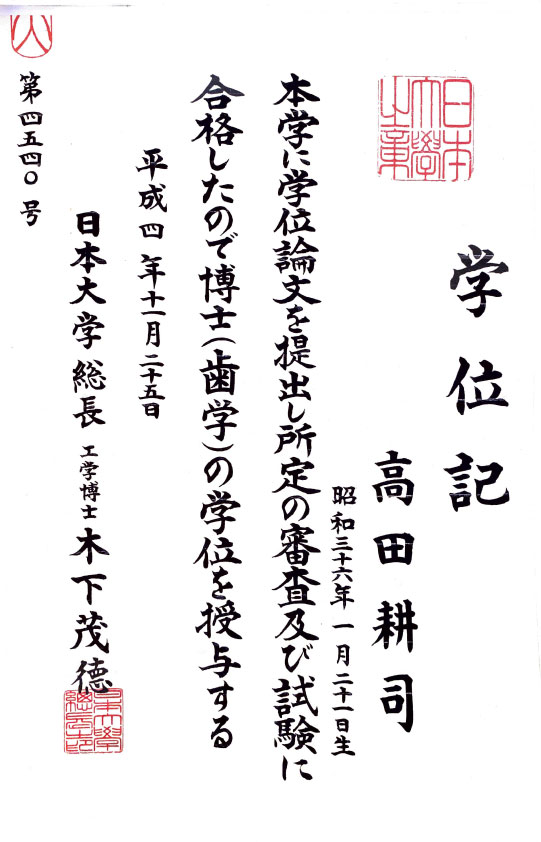 学位記
高田耕司
昭和三十六年一月二十一日生
本学に学位論文を提出し所定の審査及び試験に
合格したので博士(歯学)の学位を授与する
平成四年十一月二十五日
日本大学総長 工学博士 木下茂徳
第四五四〇号
日本大學之章